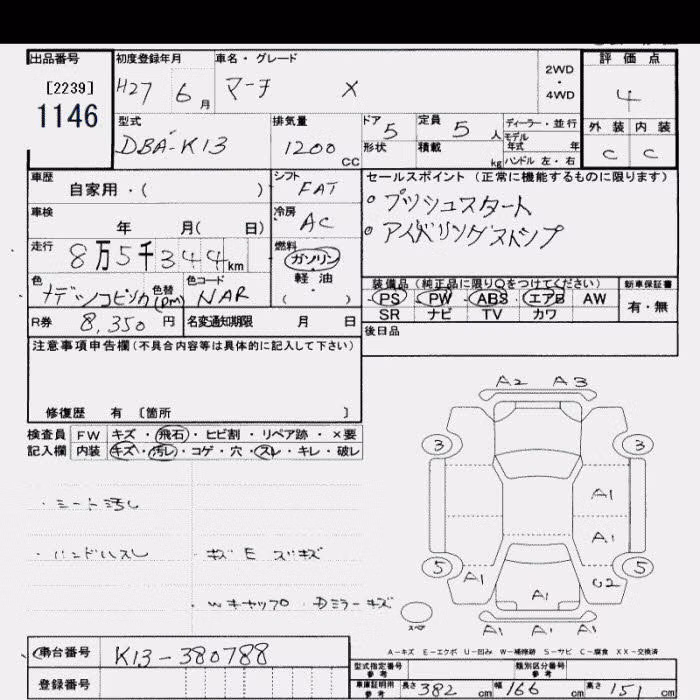 出品番号
[2239]
1146
初度登録年月
H27 6月
車名・グレード
マーチ X
2WD
・
4WD
評価点
4
外装 内装
C C
型式
DBA-K13
排気量
1200
CC
ドア 5
形状
定員 5 人
積載 kg
ディーラー・並行
モデル
年式 年
ハンドル 左・右
車歴
自家用・( )
シフト
FAT
車検
年 月( 日)
冷房
AC
走行
8万5千344km
燃料
ガソリン
軽油
( )
色
ナデシコピンク
色替
(PM)
色コード
NAR
セールスポイント (正常に機能するものに限ります)
○プッシュスタート
○アイドリングストップ
装備品 (純正品に限り○をつけてください)
・PS・PW・ABS・エアB・AW
SR ナビ TV カワ
新車保証書
有・無
後日品
R券 8,350円
名変通知期限 月 日
注意事項申告欄(不具合内容等は具体的に記入して下さい)
修復歴 有 〔箇所 〕
検査員
記入欄
FW キズ・飛石・ヒビ割・リペア跡・×要
内装 キズ・汚レ・コゲ・穴・スレ・キレ・破レ
・シート汚レ
・ハンドルスレ ・キズE スリキズ
・Wキャップ ・Dミラーキズ
A2 A3
3 3
A1
A1
5 5
A1 U2
A1
スペア
A1 A1 A1
A-キズ E-エクボ U-凹み W-補修跡 S-サビ C-腐食 XX-交換済
車台番号 K13-380788
登録番号
型式指定番号
参考
類別区分番号
参考
車庫証明用
参考
長さ 382 cm 幅 166 cm 高さ 151 cm